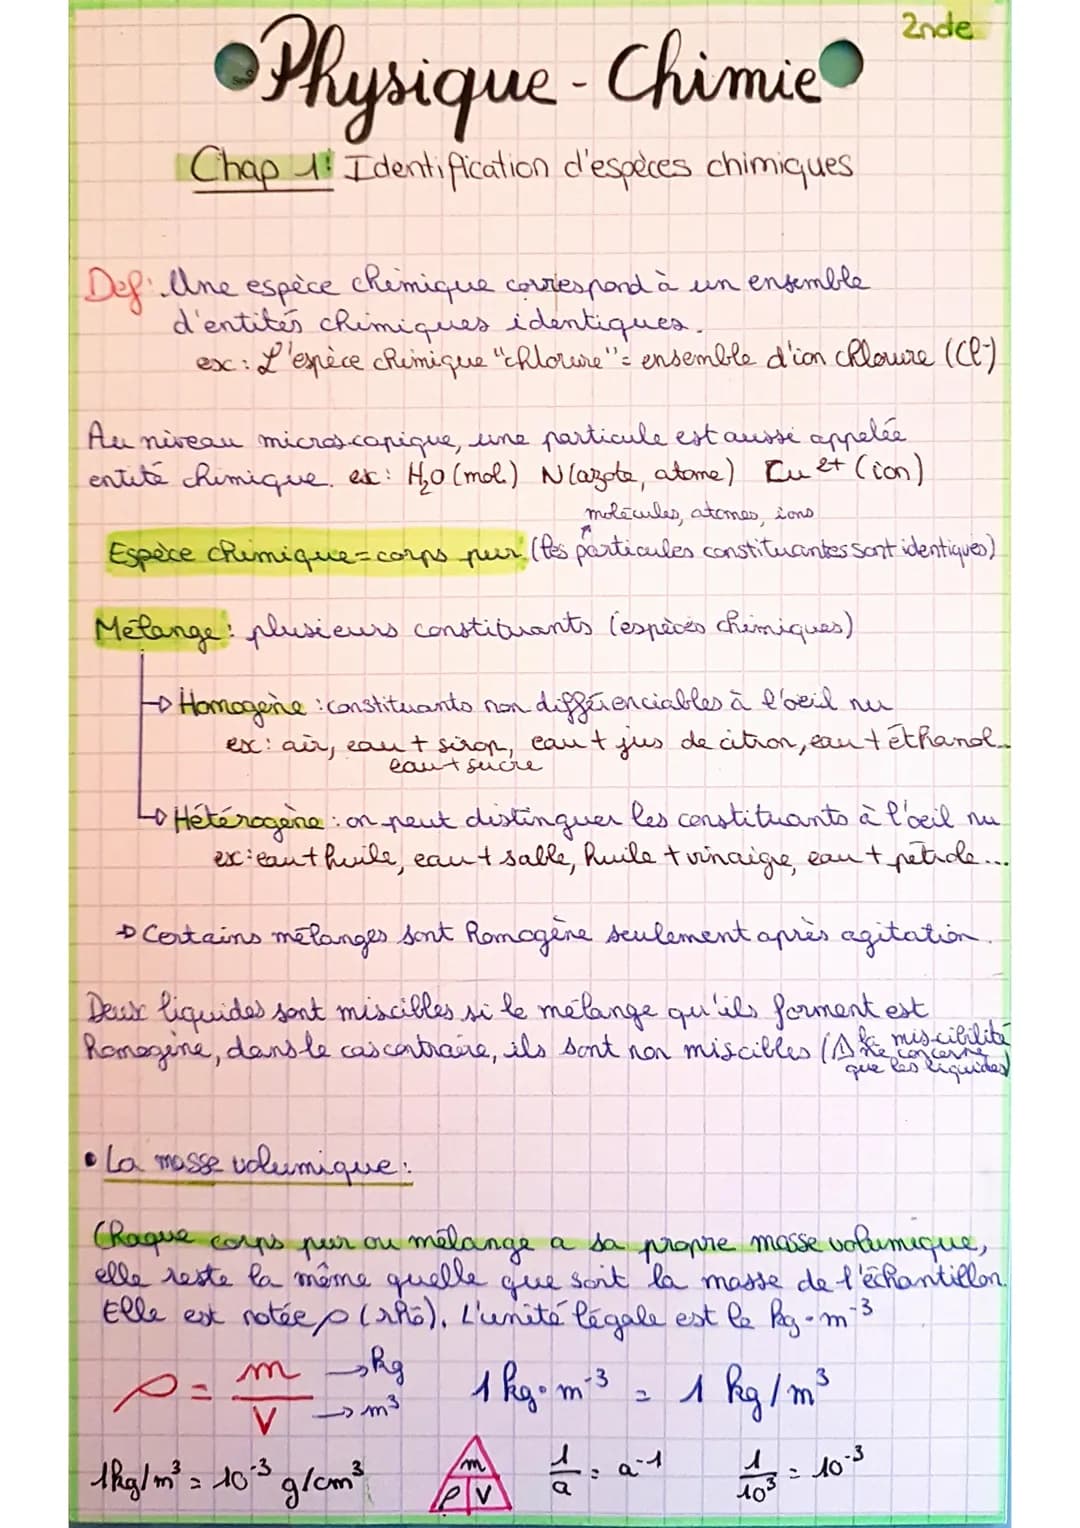 2nde
Physique-Chimie
Chap 1: Identification d'espèces chimiques
Def: Une espèce chimique correspond à un ensemble
d'entités chimiques identiques.
ex: L'espèce chimique "chlorure" = ensemble d'ion chlorure (Cl-)
Au niveau microscopique, une particule est aussi appelée
entité chimique. ex: H₂O (mol.) N (azote, atome) Cu 2+ (ion)
molécules, atomes, ions
Espèce chimique = corps pur (les particules constituantes sont identiques)
Mélange: plusieurs constituants (espèces chimiques)
→ Homogène: constituants non différenciables à l'oeil nu
ex: air, eau + sirop, eau + jus de citron, eau + éthanol...
eau + sucre
→ Hétérogène: on peut distinguer les constituants à l'oeil nu
ex: eau + huile, eau + sable, huile + vinaigre, eau + pétrole...
→ Certains mélanges sont homogène seulement après agitation.
Deux liquides sont miscibles si le mélange qu'ils forment est
homogène, dans le cas contraire, ils sont non miscibles (⚠ la miscibilité
ne concerne
que les liquides)
• La masse volumique:
Chaque corps pur ou mélange a sa propre masse volumique,
elle reste la même quelle que soit la masse de l'échantillon.
Elle est notée ρ (rhô). L'unité légale est le kg·m⁻³
ρ = m/V → kg → m³ 1 kg·m⁻³ = 1 kg/m³
1kg/m³ = 10⁻³ g/cm³ m ρ V 1/a = a⁻¹ 1/10³ = 10⁻³